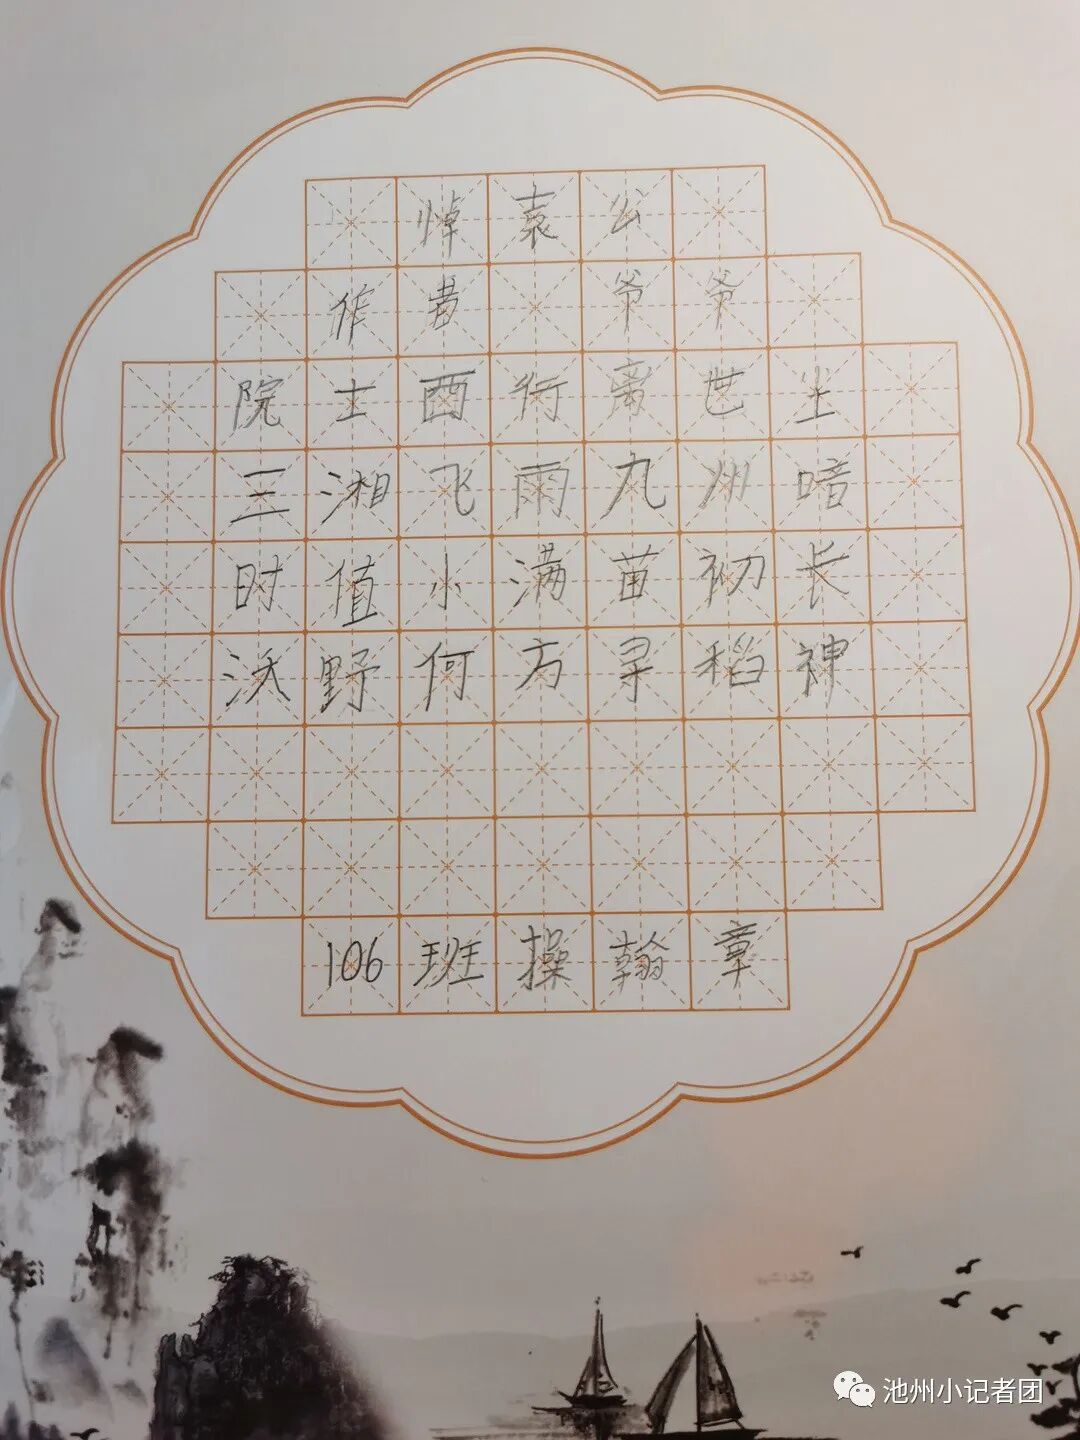 悼袁公
作者 爷爷
院士西行离世尘
三湘飞雨九州暗
时值小满苗初长
沃野何方寻稻神
106班操翰章
池州小记者团